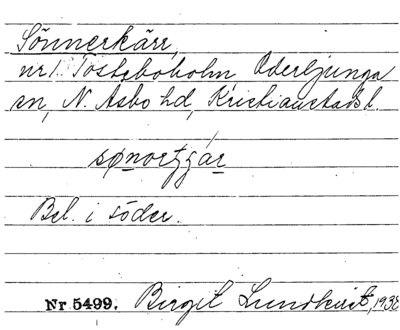 Sönnerkärr,
nr 1. Tostaboholm, Oderljunga
sn, N. Åsbo hd, Kristianstads l.
Bel. i söder.
Nr 5499. Birgit Lundkvist, 1938